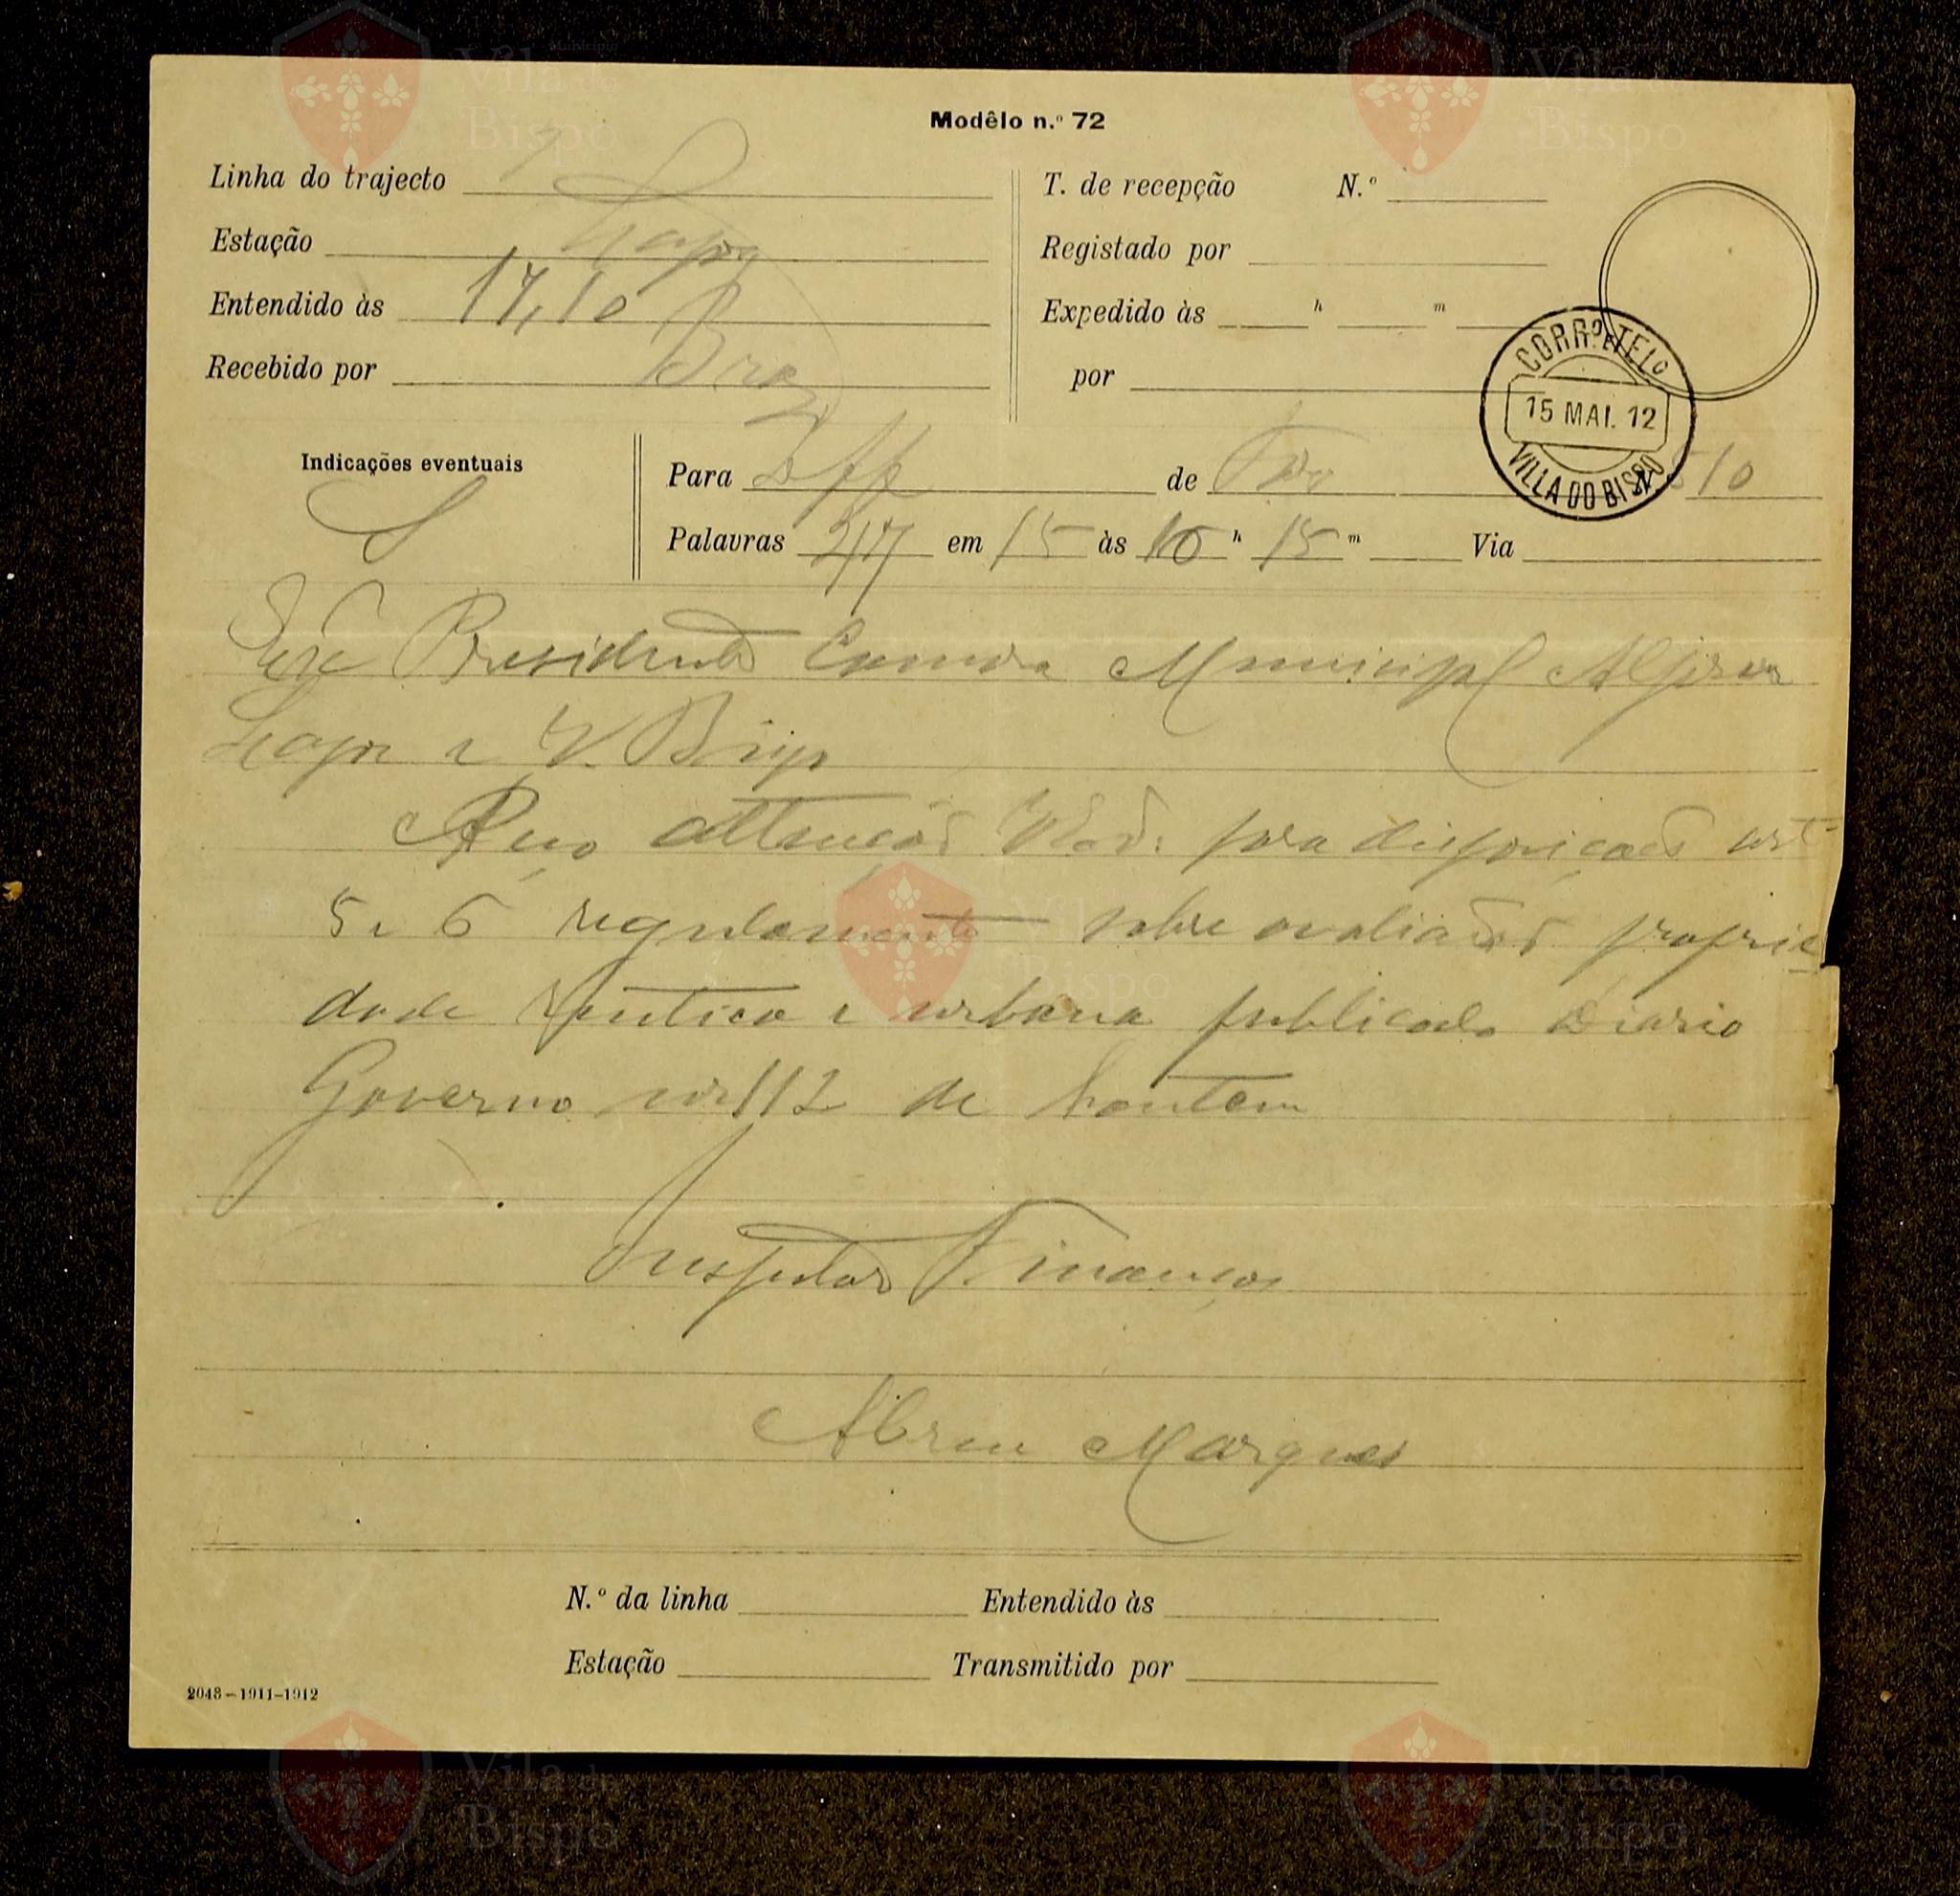 Modêlo n.º 72
Linha do trajecto
Estação Lagos
Entendido às 17,10
Recebido por Braz
T. de recepção N.º
Registado por
Expedido às h m
por
CORR.º E TELº
15 MAI. 12
VILLA DO BISPO
Indicações eventuais
S
Para de Faro 510
Palavras em 15 às 16 h 15 m Via
Presidente Camara Municipal Aljezur
Lagos e V. Bispo
Peço attenção para disposição art
5 e 6 regulamento sobre avaliações proprie
dade rustica e urbana publicado Diario
Governo 112 de hontem
Inspector Finanças
Abreu Marques
N.º da linha Entendido às
Estação Transmitido por
2048-1911-1912
Município
Vila do
Bispo